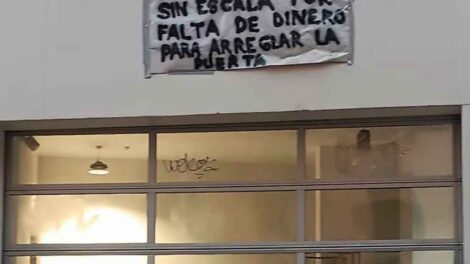 SIN ESCALA POR
FALTA DE DINERO
PARA ARREGLAR LA
PUERTA